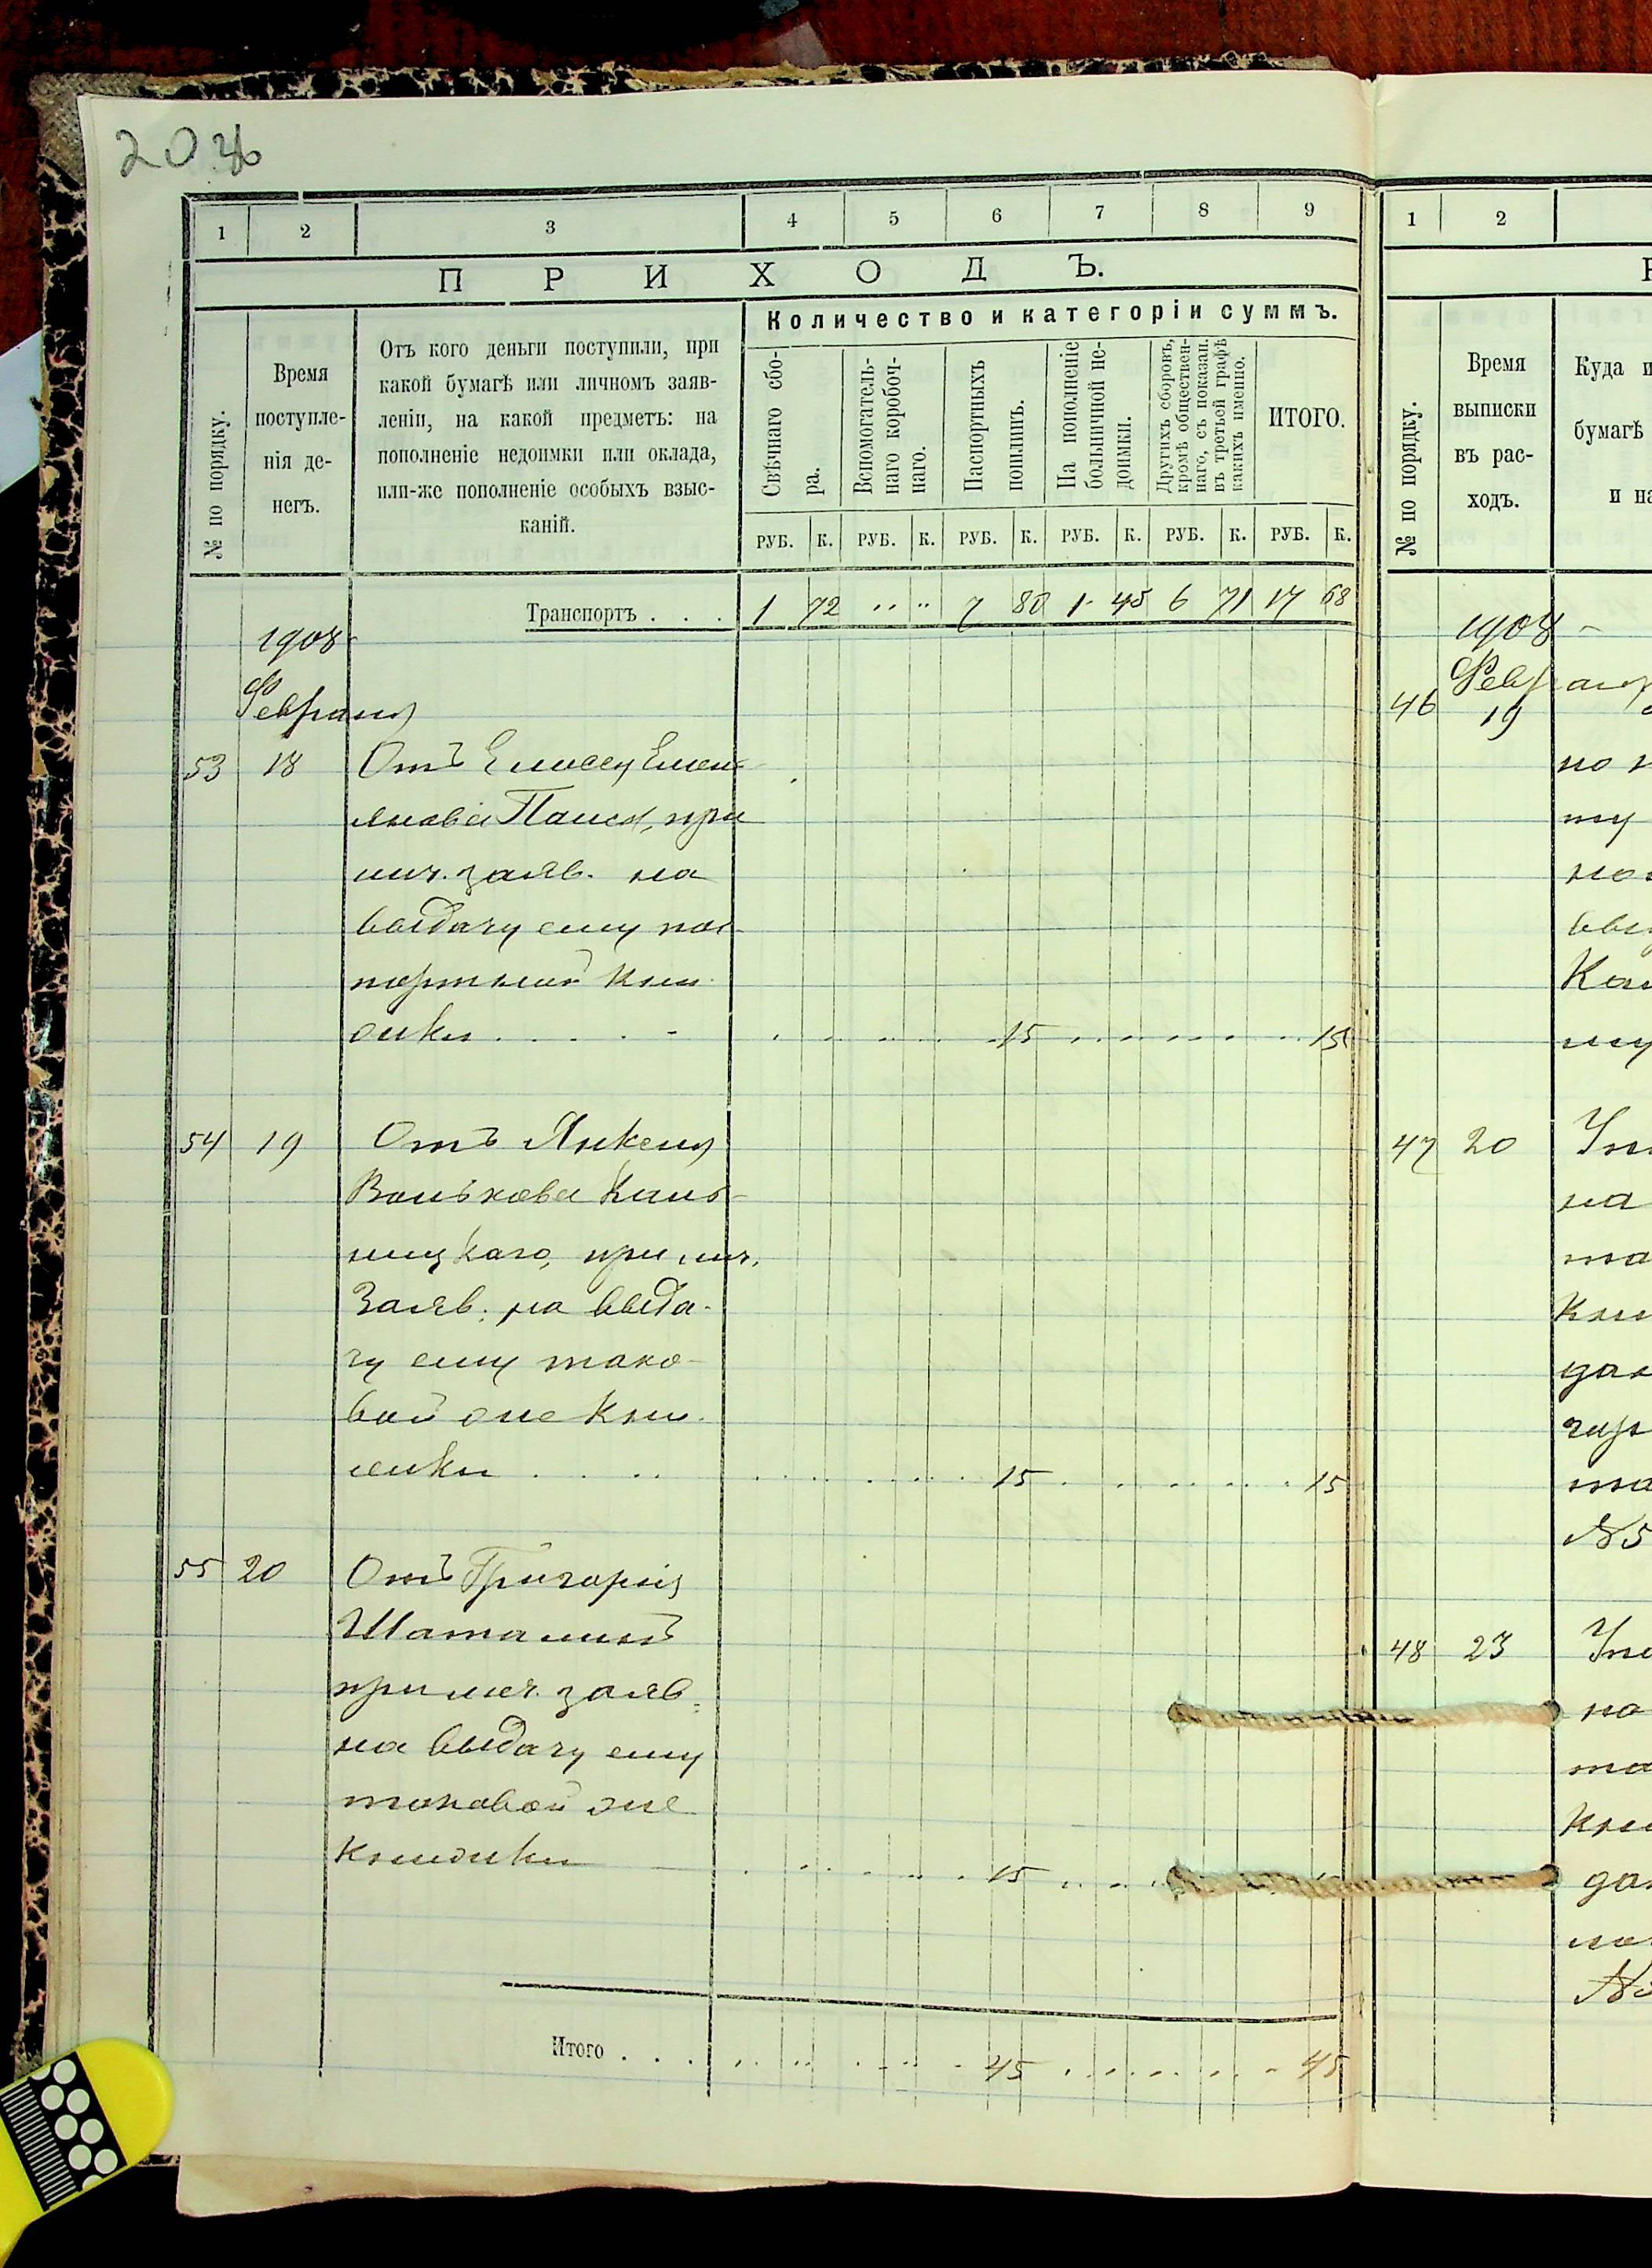 203
1 2 3 4 5 6 7 8 9
ПРИХОДЪ.
№ по порядку.
Время
поступле-
нія де-
негъ.
Отъ кого деньги поступили, при
какой бумагѣ или личномъ заяв-
леніи, на какой предметъ: на
пополненіе недоимки или оклада,
или-же пополненіе особыхъ взыс-
каній.
Количество и категоріи суммъ.
Свѣчнаго сбо-
ра.
Вспомогатель-
наго коробоч-
наго.
Паспортныхъ
пошлинъ.
На пополненіе
больничной не-
доимки.
Другихъ сборовъ,
кромѣ обществен-
наго, съ показан.
въ третьей графѣ
какихъ именно.
ИТОГО.
РУБ. К. РУБ. К. РУБ. К. РУБ. К. РУБ. К. РУБ. К.
Транспортъ . . . 1 72 " " 7 80 1 45 6 71 17 68
1908
Февраля
53 18 Отъ
при
лич. заяв. на
выдачу ему пас-
портной кни-
жки . . . . 15 15
54 19 Отъ Янкеля
Волькова
при лич.
Заяв. на выда-
чу ему тако-
вой же кни-
жки . . . . 15 15
55 20 Отъ Григорія
при лич. заяв.
на выдачу ему
таковой же
книжки 15
Итого . . . 45 45
1 2
№ по порядку.
Время
выписки
въ рас-
ходъ.
Куда и
бумагѣ
и на
1908
Февраля
46 19
по
ту
47 20
на
та
кни
№5
48 23
на
та
кни
№